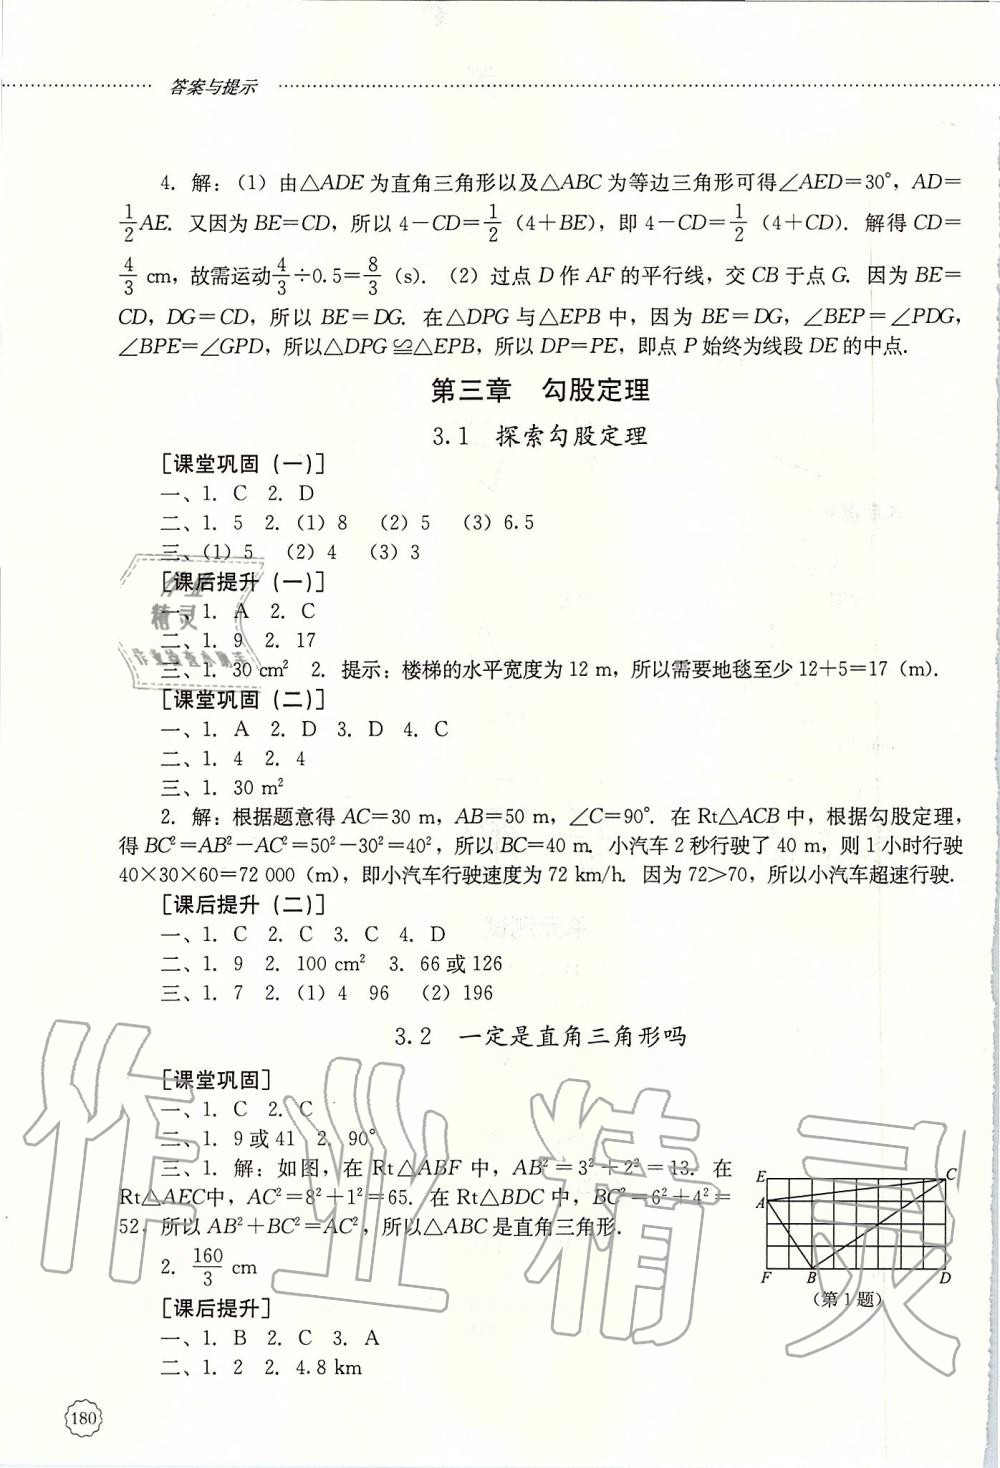 答案与提示
4. 解：(1) 由△ADE 为直角三角形以及△ABC 为等边三角形可得∠AED＝30°，AD＝
1/2 AE. 又因为 BE＝CD，所以 4－CD＝1/2 (4＋BE)，即 4－CD＝1/2 (4＋CD). 解得 CD＝
4/3 cm，故需运动 4/3÷0.5＝8/3 (s). (2) 过点 D 作 AF 的平行线，交 CB 于点 G. 因为 BE＝
CD，DG＝CD，所以 BE＝DG. 在△DPG 与△EPB 中，因为 BE＝DG，∠BEP＝∠PDG，
∠BPE＝∠GPD，所以△DPG≌△EPB，所以 DP＝PE，即点 P 始终为线段 DE 的中点.
第三章 勾股定理
3.1 探索勾股定理
[课堂巩固 (一)]
一、1. C 2. D
二、1. 5 2. (1) 8 (2) 5 (3) 6.5
三、(1) 5 (2) 4 (3) 3
[课后提升 (一)]
一、1. A 2. C
二、1. 9 2. 17
三、1. 30 cm² 2. 提示：楼梯的水平宽度为 12 m，所以需要地毯至少 12＋5＝17 (m).
[课堂巩固 (二)]
一、1. A 2. D 3. D 4. C
二、1. 4 2. 4
三、1. 30 m²
2. 解：根据题意得 AC＝30 m，AB＝50 m，∠C＝90°. 在 Rt△ACB 中，根据勾股定理，
得 BC²＝AB²－AC²＝50²－30²＝40²，所以 BC＝40 m. 小汽车 2 秒行驶了 40 m，则 1 小时行驶
40×30×60＝72 000 (m)，即小汽车行驶速度为 72 km/h. 因为 72＞70，所以小汽车超速行驶.
[课后提升 (二)]
一、1. C 2. C 3. C 4. D
二、1. 9 2. 100 cm² 3. 66 或 126
三、1. 7 2. (1) 4 96 (2) 196
3.2 一定是直角三角形吗
[课堂巩固]
一、1. C 2. C
二、1. 9 或 41 2. 90°
三、1. 解：如图，在 Rt△ABF 中，AB²＝3²＋2²＝13. 在
Rt△AEC中，AC²＝8²＋1²＝65. 在 Rt△BDC 中，BC²＝6²＋4²＝
52，所以 AB²＋BC²＝AC²，所以△ABC 是直角三角形.
2. 160/3 cm
E C
A
F B D
(第 1 题)
[课后提升]
一、1. B 2. C 3. A
二、1. 2 2. 4.8 km
180
作业精灵
作业
精灵